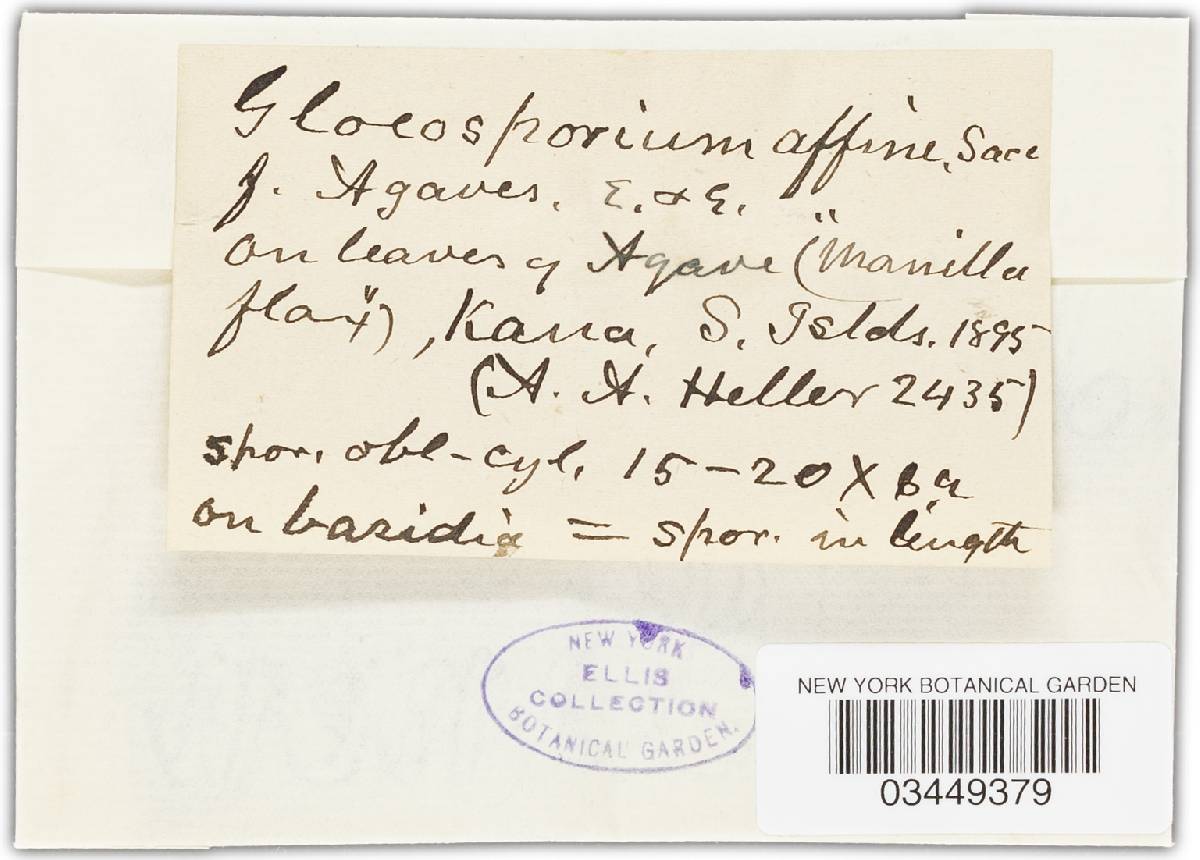 Gloeosporium affine, Sacc
f. Agaves, E. & E.
on leaves of Agave ("Manilla
flax"), Kaua, S. Islds. 1895
(A. A. Heller 2435)
spor. obl-cyl, 15-20 X 6
on basidia = spor. in length
NEW YORK
ELLIS
COLLECTION
BOTANICAL GARDEN.
NEW YORK BOTANICAL GARDEN
03449379